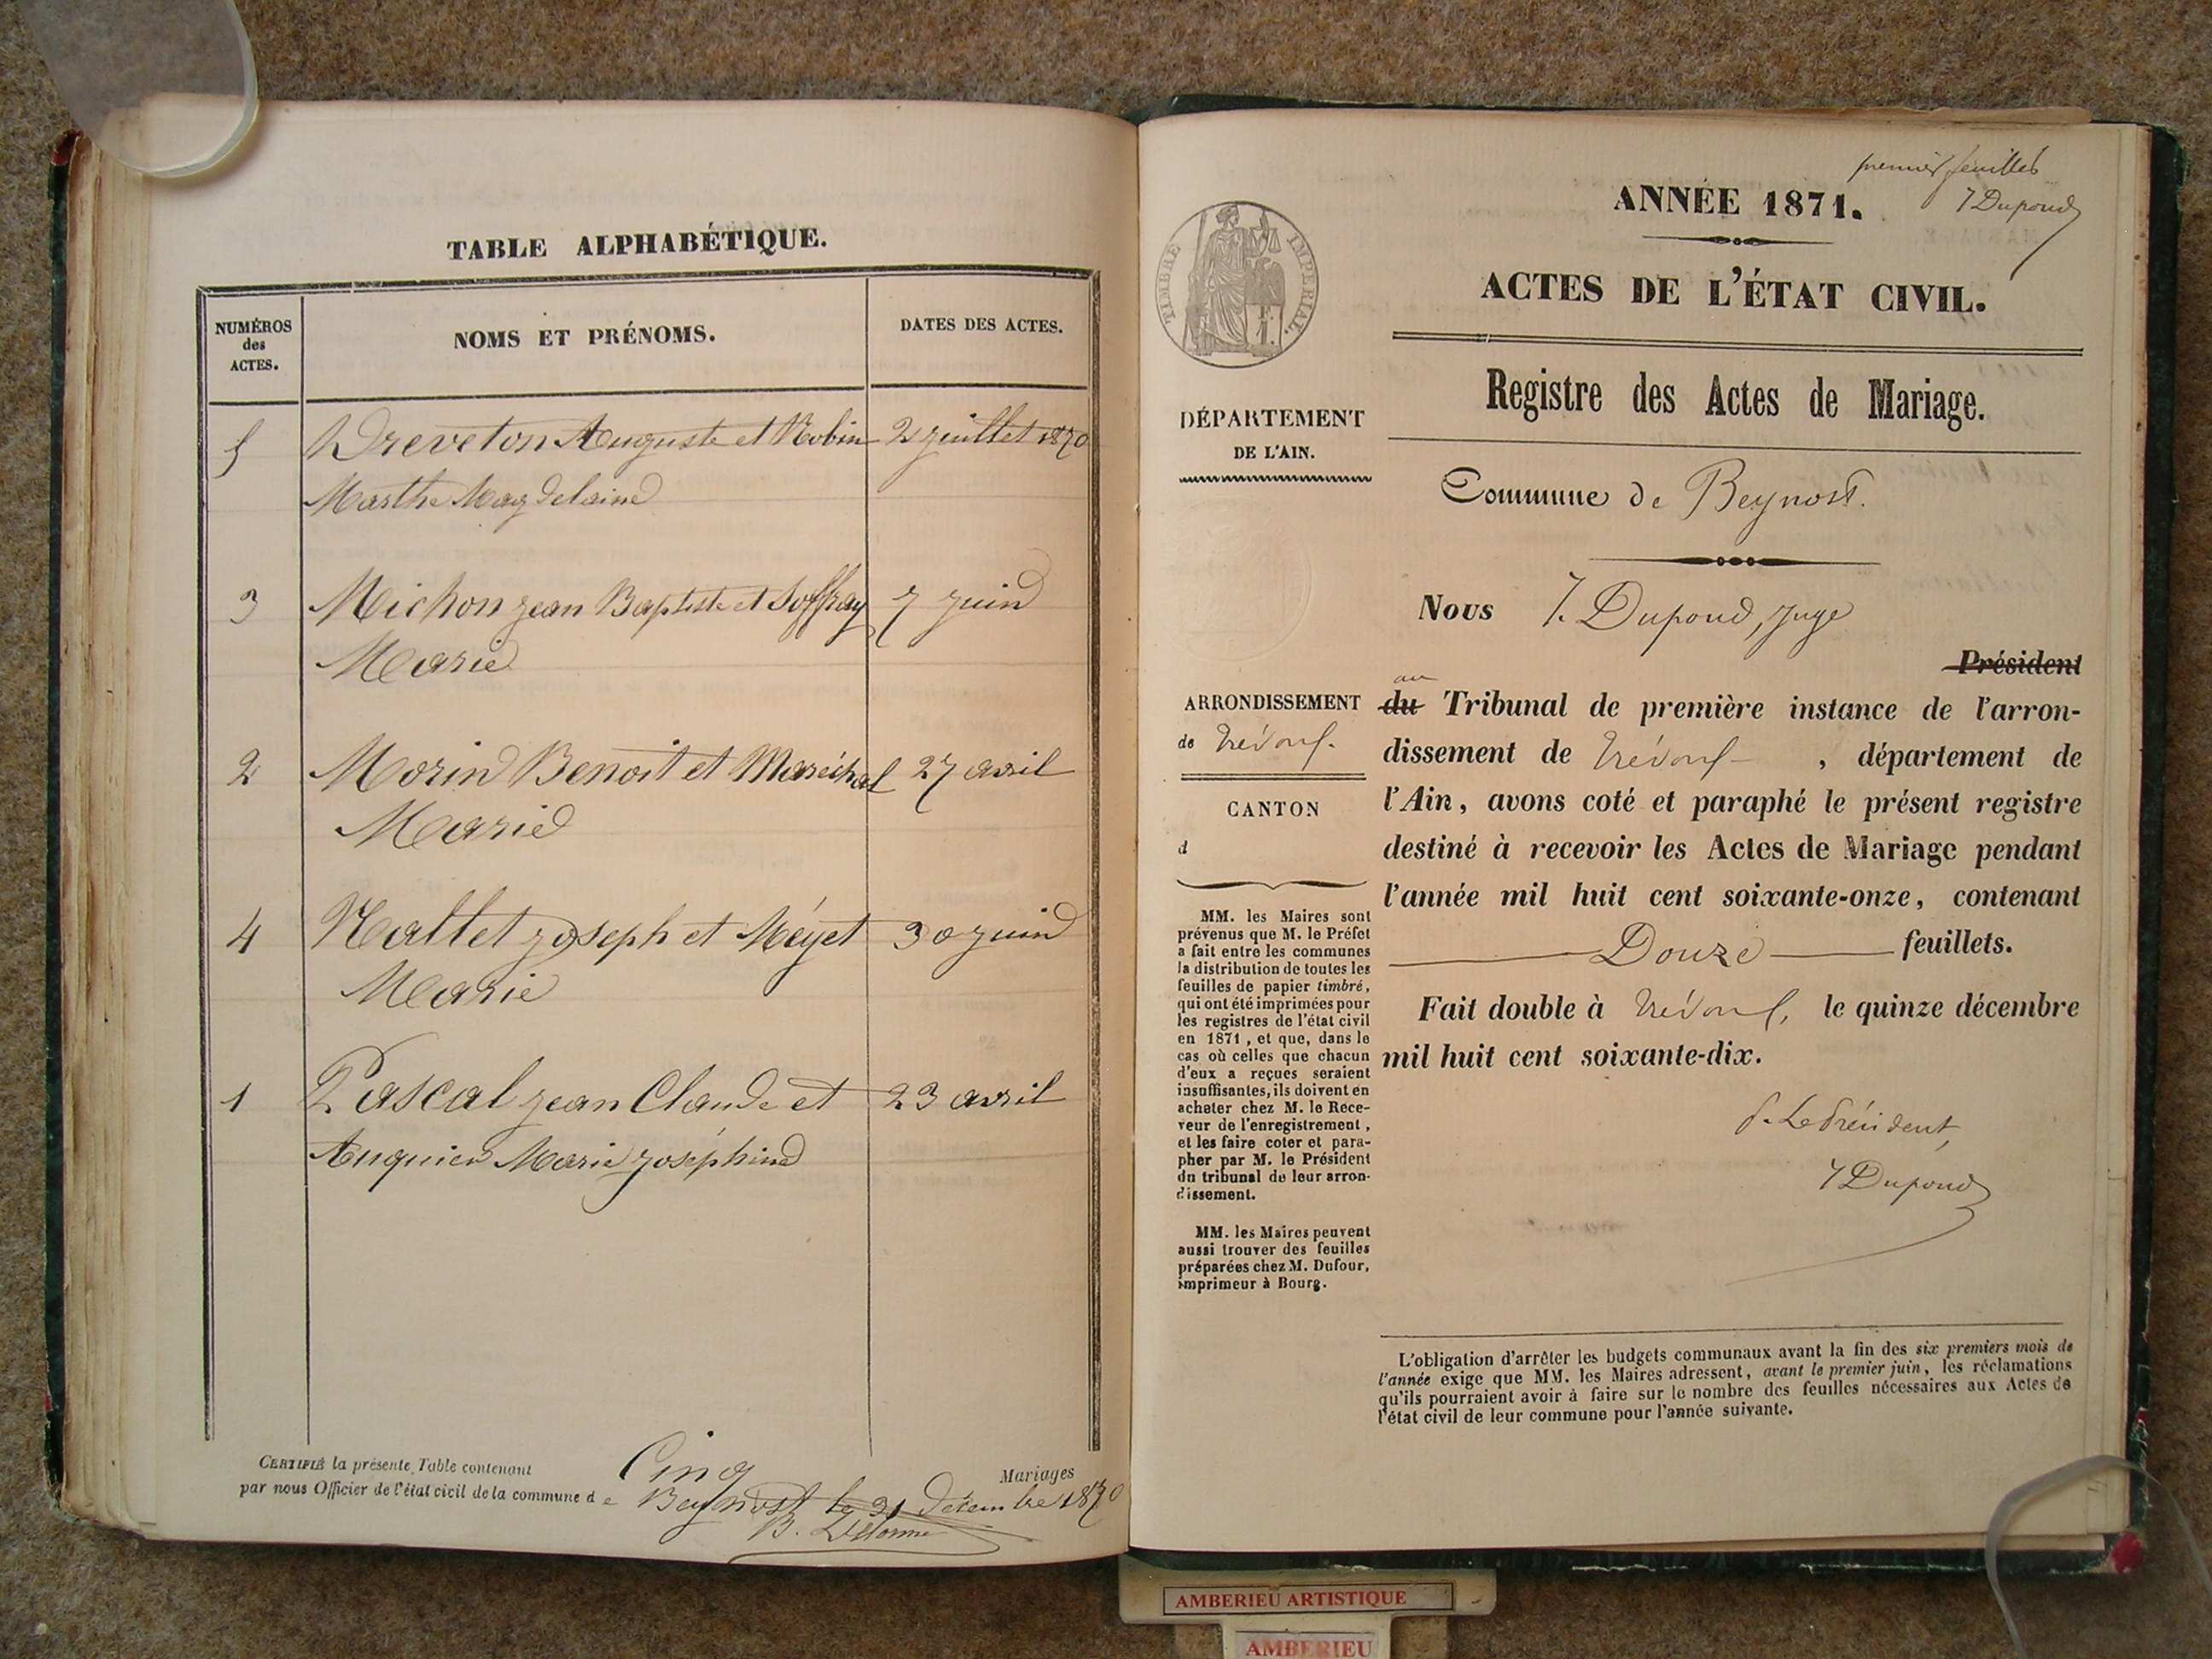 TABLE ALPHABÉTIQUE.
NUMÉROS
des
ACTES.
NOMS ET PRÉNOMS.
DATES DES ACTES.
5 Dreveton Auguste et Robin 2 juillet 1870
Marthe Magdelaine
3 Michon jean Baptiste et Soffray 7 juin
Marie
2 Morin Benoit et Maréchal 27 avril
Marie
4 Nallet joseph et Méyet 30 juin
Marie
1 Pascal jean Claude et 23 avril
Auquier Marie joséphine
CERTIFIÉ la présente Table contenant Cinq Mariages
par nous Officier de l'état civil de la commune de Beynost le 31 décembre 1870
B. Delorme
premier feuillet
J Dupond
ANNÉE 1871.
ACTES DE L'ÉTAT CIVIL.
TIMBRE IMPERIAL.
Registre des Actes de Mariage.
DÉPARTEMENT
DE L'AIN.
Commune de Beynost.
Nous J. Dupond, juge
Président
au
du Tribunal de première instance de l'arron-
dissement de Trévoux, département de
l'Ain, avons coté et paraphé le présent registre
destiné à recevoir les Actes de Mariage pendant
l'année mil huit cent soixante-onze, contenant
Douze feuillets.
Fait double à Trévoux, le quinze décembre
mil huit cent soixante-dix.
p. Le Président,
J Dupond
ARRONDISSEMENT
de Trévoux.
CANTON
d
MM. les Maires sont
prévenus que M. le Préfet
a fait entre les communes
la distribution de toutes les
feuilles de papier timbré,
qui ont été imprimées pour
les registres de l'état civil
en 1871, et que, dans le
cas où celles que chacun
d'eux a reçues seraient
insuffisantes, ils doivent en
acheter chez M. le Rece-
veur de l'enregistrement,
et les faire coter et para-
pher par M. le Président
du tribunal de leur arron-
dissement.
MM. les Maires peuvent
aussi trouver des feuilles
préparées chez M. Dufour,
imprimeur à Bourg.
L'obligation d'arrêter les budgets communaux avant la fin des six premiers mois de
l'année exige que MM. les Maires adressent, avant le premier juin, les réclamations
qu'ils pourraient avoir à faire sur le nombre des feuilles nécessaires aux Actes de
l'état civil de leur commune pour l'année suivante.
AMBERIEU ARTISTIQUE
AMBERIEU